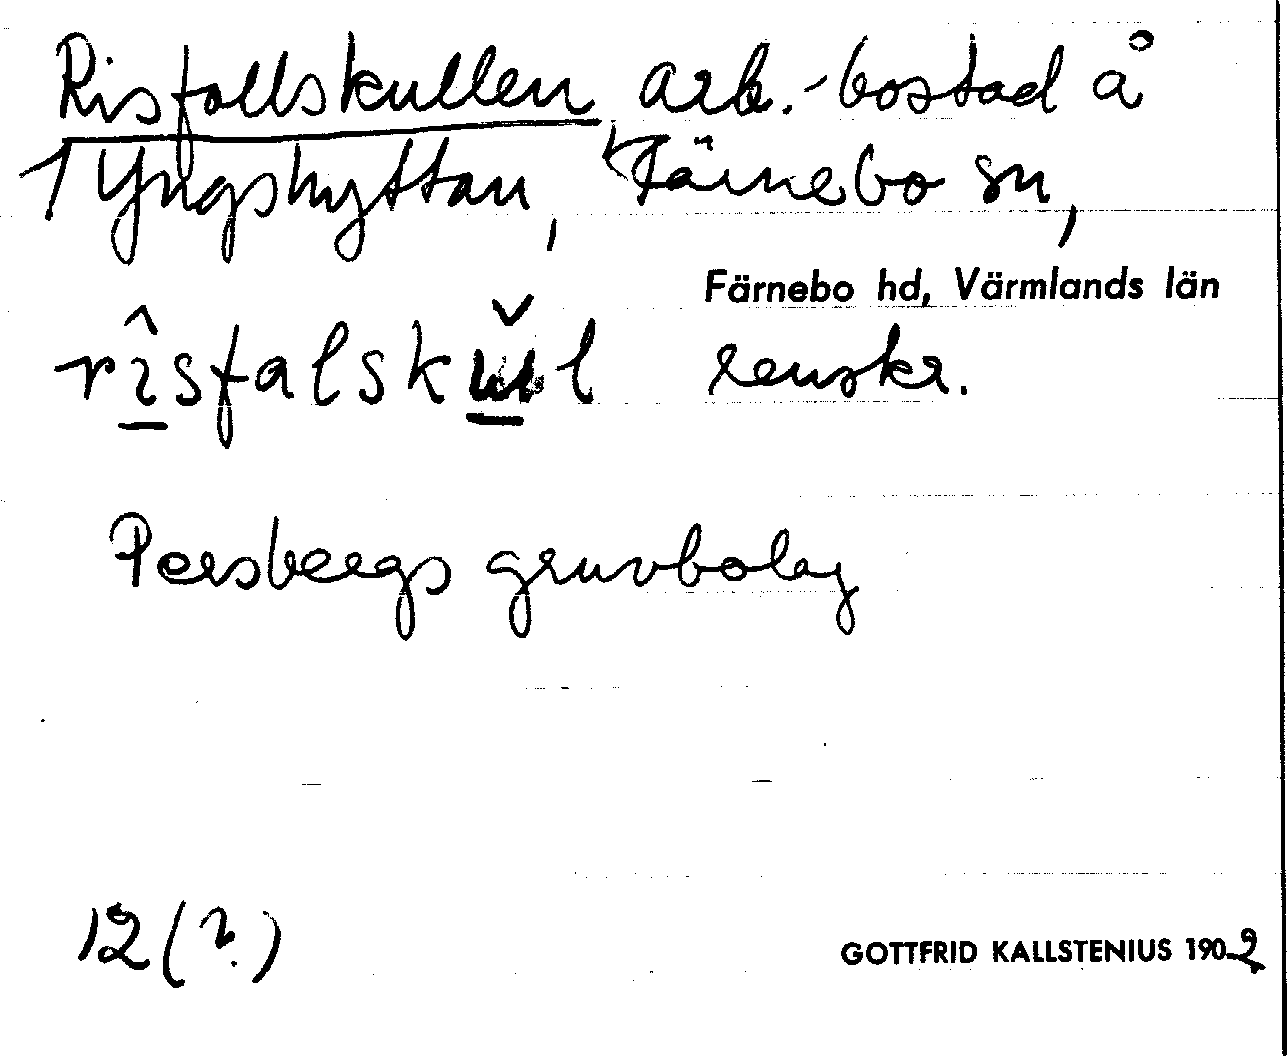 Risfallskullen arb.-bostad å
1 Yngshyttan, Färnebo sn,
Färnebo hd, Värmlands län
rîsfalskŭl renskr.
Persbergs gruvbolag
12 (?)
GOTTFRID KALLSTENIUS 1902